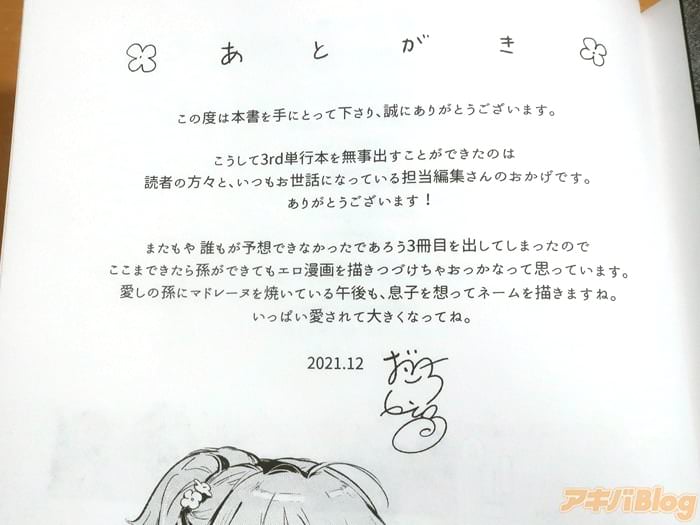 あとがき
この度は本書を手にとって下さり、誠にありがとうございます。
こうして3rd単行本を無事出すことができたのは
読者の方々と、いつもお世話になっている担当編集さんのおかげです。
ありがとうございます！
またもや 誰もが予想できなかったであろう3冊目を出してしまったので
ここまできたら孫ができてもエロ漫画を描きつづけちゃおっかなって思っています。
愛しの孫にマドレーヌを焼いている午後も、息子を想ってネームを描きますね。
いっぱい愛されて大きくなってね。
2021.12
アキバBlog